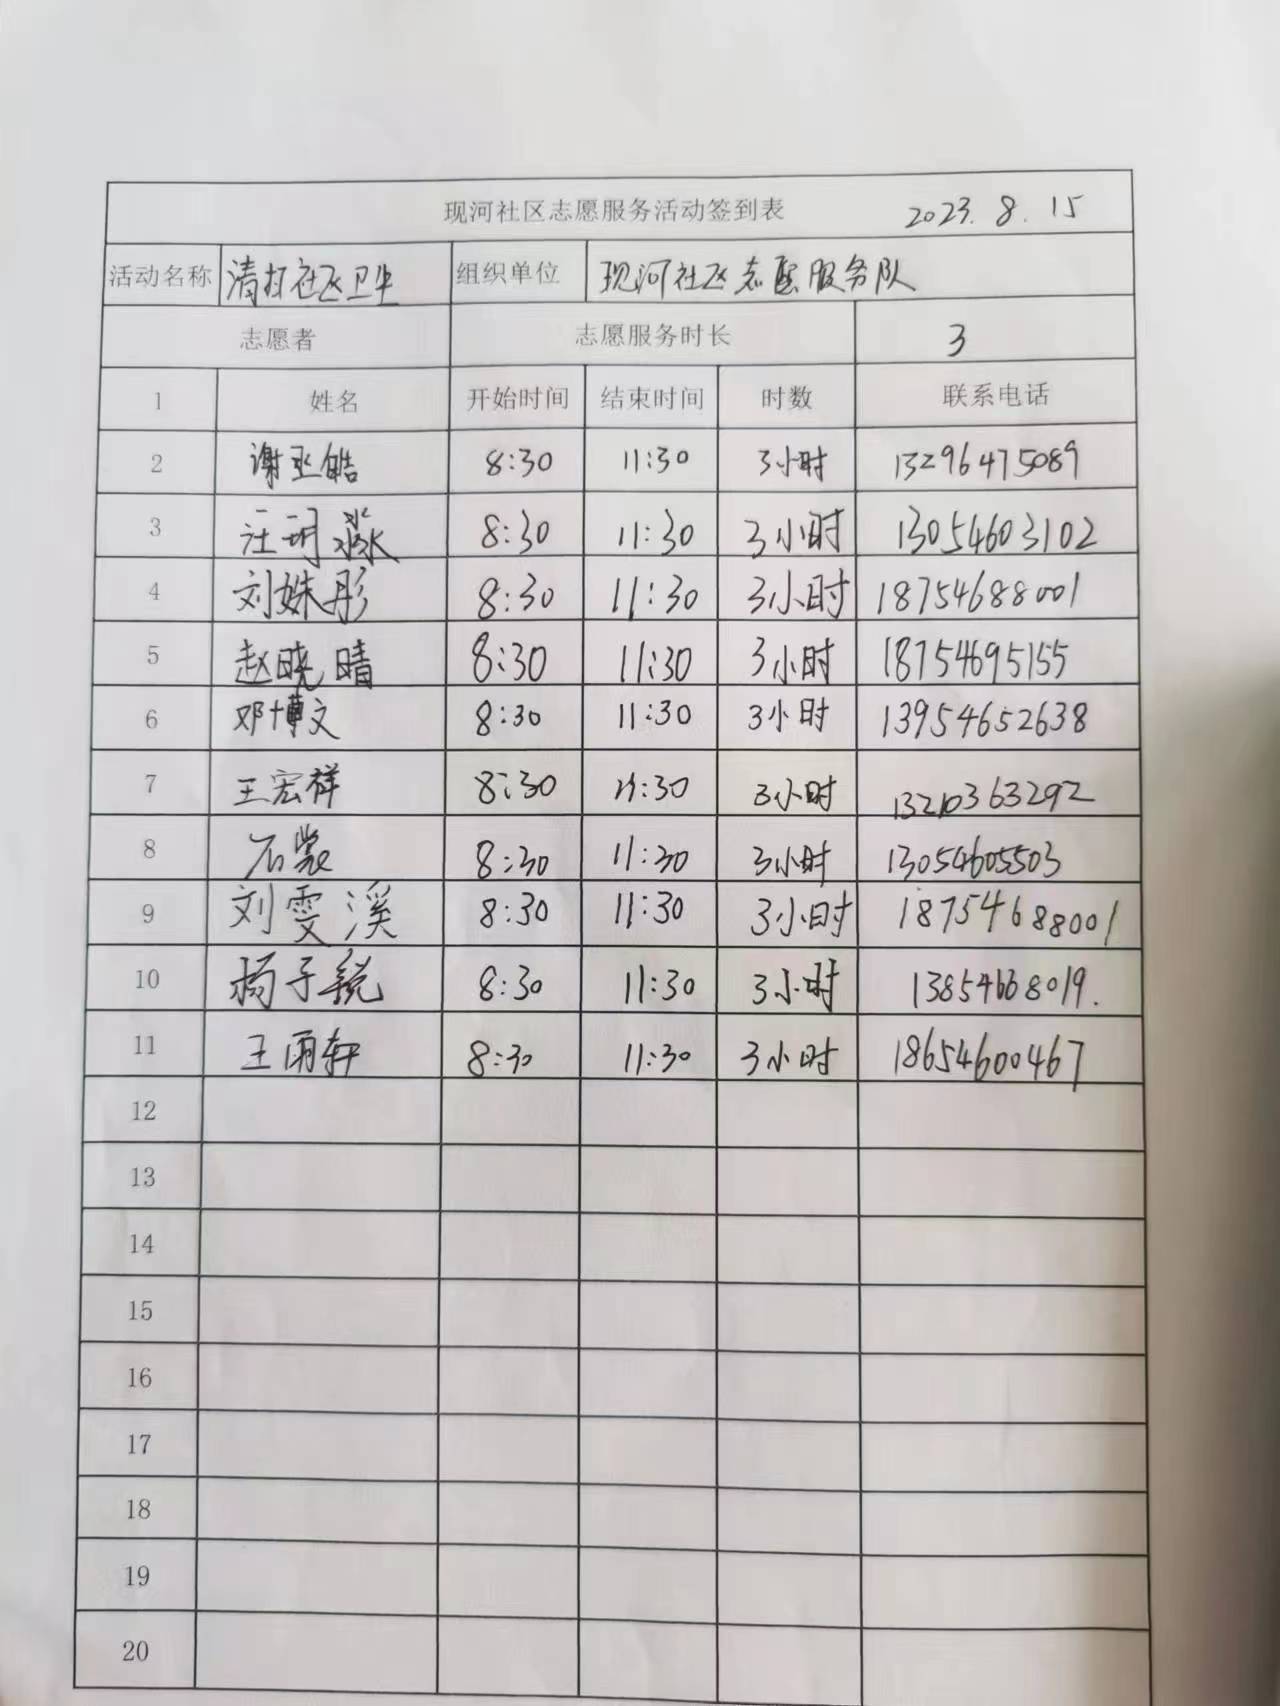 现河社区志愿服务活动签到表 2023.8.15
活动名称 清扫社区卫生 组织单位 现河社区志愿服务队
志愿者 志愿服务时长 3
1 姓名 开始时间 结束时间 时数 联系电话
2 谢丞皓 8:30 11:30 3小时 13296475089
3 汪玥淼 8:30 11:30 3小时 13054603102
4 刘姝彤 8:30 11:30 3小时 18754688001
5 赵晓晴 8:30 11:30 3小时 18754695155
6 邓博文 8:30 11:30 3小时 13954652638
7 王宏祥 8:30 11:30 3小时 13210363292
8 石 8:30 11:30 3小时 13054605503
9 刘雯溪 8:30 11:30 3小时 18754688001
10 杨子锐 8:30 11:30 3小时 13854668019.
11 王雨轩 8:30 11:30 3小时 18654600467
12
13
14
15
16
17
18
19
20